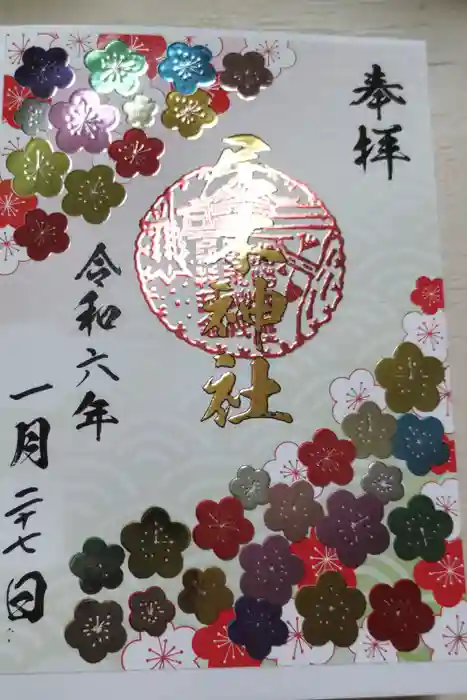 奉拝
居木神社
令和六年
一月二十七日